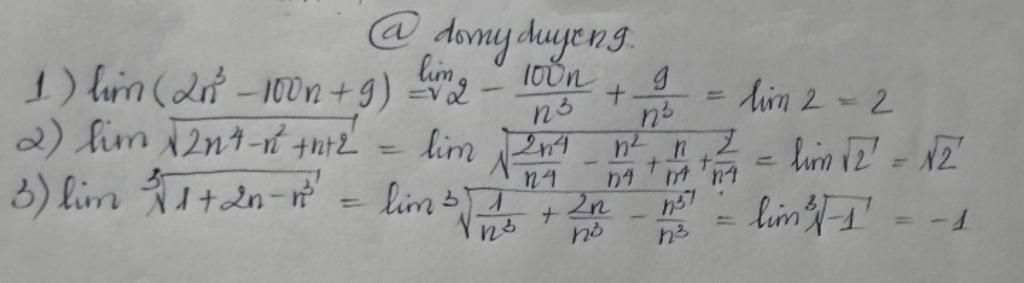 @ domyduyeng.
1) lim (2n³ – 100n + 9) = lim 2 – 100n/n³ + 9/n³ = lim 2 = 2
2) lim √(2n⁴ – n² + n + 2) = lim √(2n⁴/n⁴ – n²/n⁴ + n/n⁴ + 2/n⁴) = lim √2 = √2
3) lim ³√(1 + 2n – n³) = lim ³√(1/n³ + 2n/n³ – n³/n³) = lim ³√-1 = -1